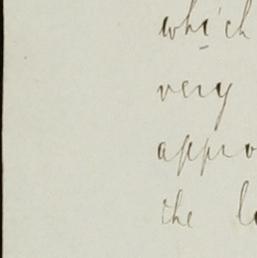 which
very
appro
the l